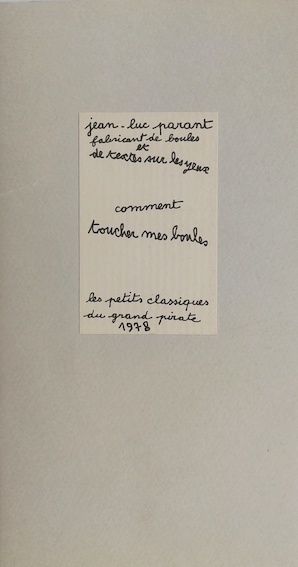 jean-luc parant
fabricant de boules
et
de textes sur les yeux
comment
toucher mes boules
les petits classiques
du grand pirate
1978